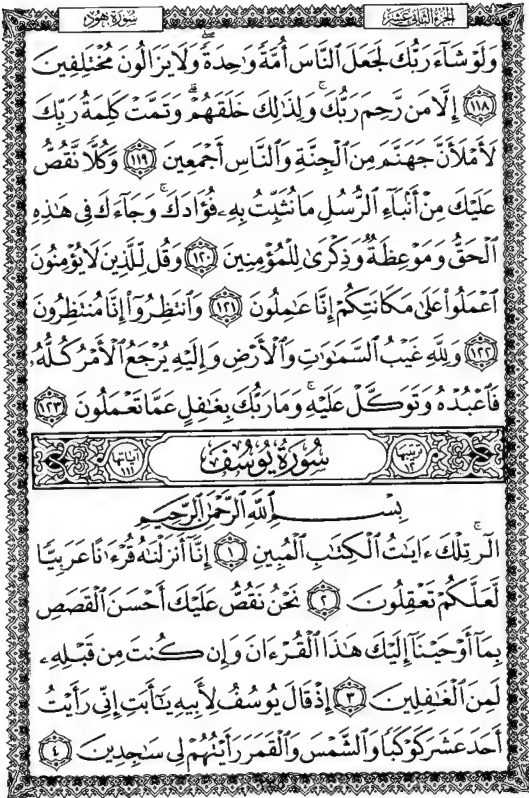 الجزء الثاني عشر
سورة هود
وَلَوْ شَآءَ رَبُّكَ لَجَعَلَ ٱلنَّاسَ أُمَّةً وَٰحِدَةً ۖ وَلَا يَزَالُونَ مُخْتَلِفِينَ
﴿١١٨﴾ إِلَّا مَن رَّحِمَ رَبُّكَ ۚ وَلِذَٰلِكَ خَلَقَهُمْ ۗ وَتَمَّتْ كَلِمَةُ رَبِّكَ
لَأَمْلَأَنَّ جَهَنَّمَ مِنَ ٱلْجِنَّةِ وَٱلنَّاسِ أَجْمَعِينَ ﴿١١٩﴾ وَكُلًّا نَّقُصُّ
عَلَيْكَ مِنْ أَنۢبَآءِ ٱلرُّسُلِ مَا نُثَبِّتُ بِهِۦ فُؤَادَكَ ۚ وَجَآءَكَ فِى هَٰذِهِ
ٱلْحَقُّ وَمَوْعِظَةٌ وَذِكْرَىٰ لِلْمُؤْمِنِينَ ﴿١٢٠﴾ وَقُل لِّلَّذِينَ لَا يُؤْمِنُونَ
ٱعْمَلُوا۟ عَلَىٰ مَكَانَتِكُمْ إِنَّا عَٰمِلُونَ ﴿١٢١﴾ وَٱنتَظِرُوٓا۟ إِنَّا مُنتَظِرُونَ
﴿١٢٢﴾ وَلِلَّهِ غَيْبُ ٱلسَّمَٰوَٰتِ وَٱلْأَرْضِ وَإِلَيْهِ يُرْجَعُ ٱلْأَمْرُ كُلُّهُۥ
فَٱعْبُدْهُ وَتَوَكَّلْ عَلَيْهِ ۚ وَمَا رَبُّكَ بِغَٰفِلٍ عَمَّا تَعْمَلُونَ ﴿١٢٣﴾
ترتيبها ١٢ سورة يوسف آياتها ١١١
بِسْمِ ٱللَّهِ ٱلرَّحْمَٰنِ ٱلرَّحِيمِ
الٓر ۚ تِلْكَ ءَايَٰتُ ٱلْكِتَٰبِ ٱلْمُبِينِ ﴿١﴾ إِنَّآ أَنزَلْنَٰهُ قُرْءَٰنًا عَرَبِيًّا
لَّعَلَّكُمْ تَعْقِلُونَ ﴿٢﴾ نَحْنُ نَقُصُّ عَلَيْكَ أَحْسَنَ ٱلْقَصَصِ
بِمَآ أَوْحَيْنَآ إِلَيْكَ هَٰذَا ٱلْقُرْءَانَ وَإِن كُنتَ مِن قَبْلِهِۦ
لَمِنَ ٱلْغَٰفِلِينَ ﴿٣﴾ إِذْ قَالَ يُوسُفُ لِأَبِيهِ يَٰٓأَبَتِ إِنِّى رَأَيْتُ
أَحَدَ عَشَرَ كَوْكَبًا وَٱلشَّمْسَ وَٱلْقَمَرَ رَأَيْتُهُمْ لِى سَٰجِدِينَ ﴿٤﴾